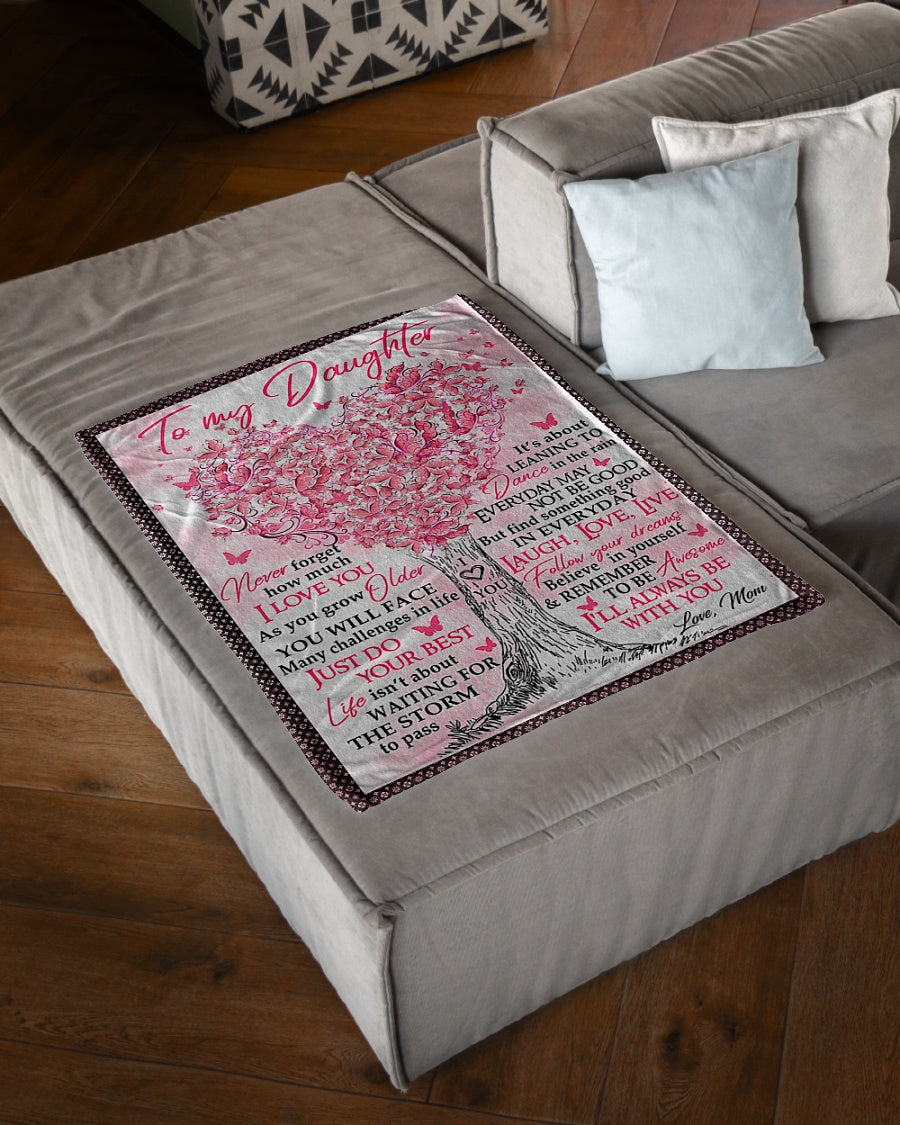 To my Daughter
Never forget
how much
I LOVE YOU
As you grow Older
YOU WILL FACE
Many challenges in life
JUST DO
YOUR BEST
Life isn't about
WAITING FOR
THE STORM
to pass
It's about
LEANING TO
Dance in the rain
EVERYDAY MAY
NOT BE GOOD
But find something good
IN EVERYDAY
LAUGH, LOVE, LIVE
Follow your dreams
Believe in yourself
& REMEMBER
TO BE Awesome
I'LL ALWAYS BE
WITH YOU
Love, Mom
I
YOU